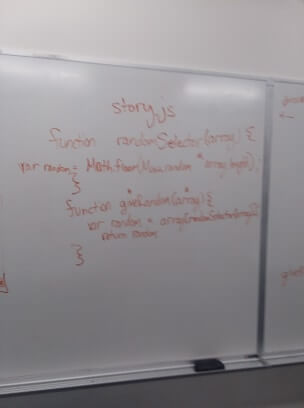 story.js
function randomSelector(array) {
var random = Math.floor(Math.random * array.length);
}
function giveRandom(array){
var random = array[randomSelector(array)]
return random
}
}